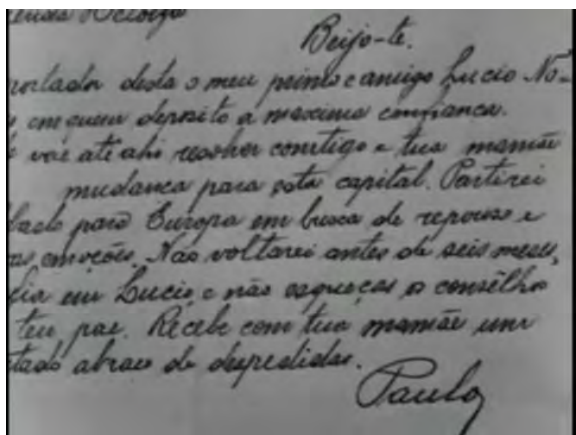 Heloiza
Beijo-te.
portador desta o meu primo e amigo Lucio No-
em quem deposito a maxima confiança.
vae até ahi resolver comtigo e tua mamãe
mudança para esta capital. Partirei
bado para Europa em busca de repouso e
as emoções. Não voltarei antes de seis meses,
fia em Lucio e não esqueças o consêlho
teu pae. Recebe com tua mamãe um
tado abraço de despedidas.
Paulo